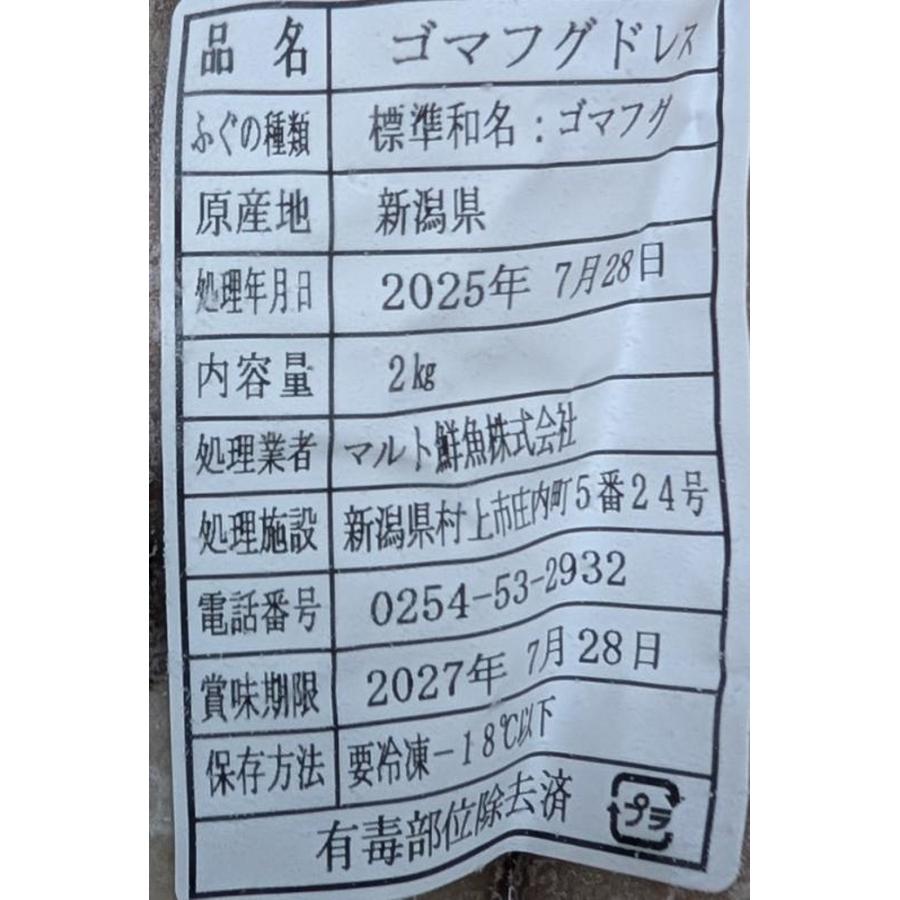 品名 ゴマフグドレス
ふぐの種類 標準和名：ゴマフグ
原産地 新潟県
処理年月日 2025年 7月28日
内容量 2kg
処理業者 マルト鮮魚株式会社
処理施設 新潟県村上市庄内町5番24号
電話番号 0254-53-2932
賞味期限 2027年 7月28日
保存方法 要冷凍－18℃以下
有毒部位除去済
プラ